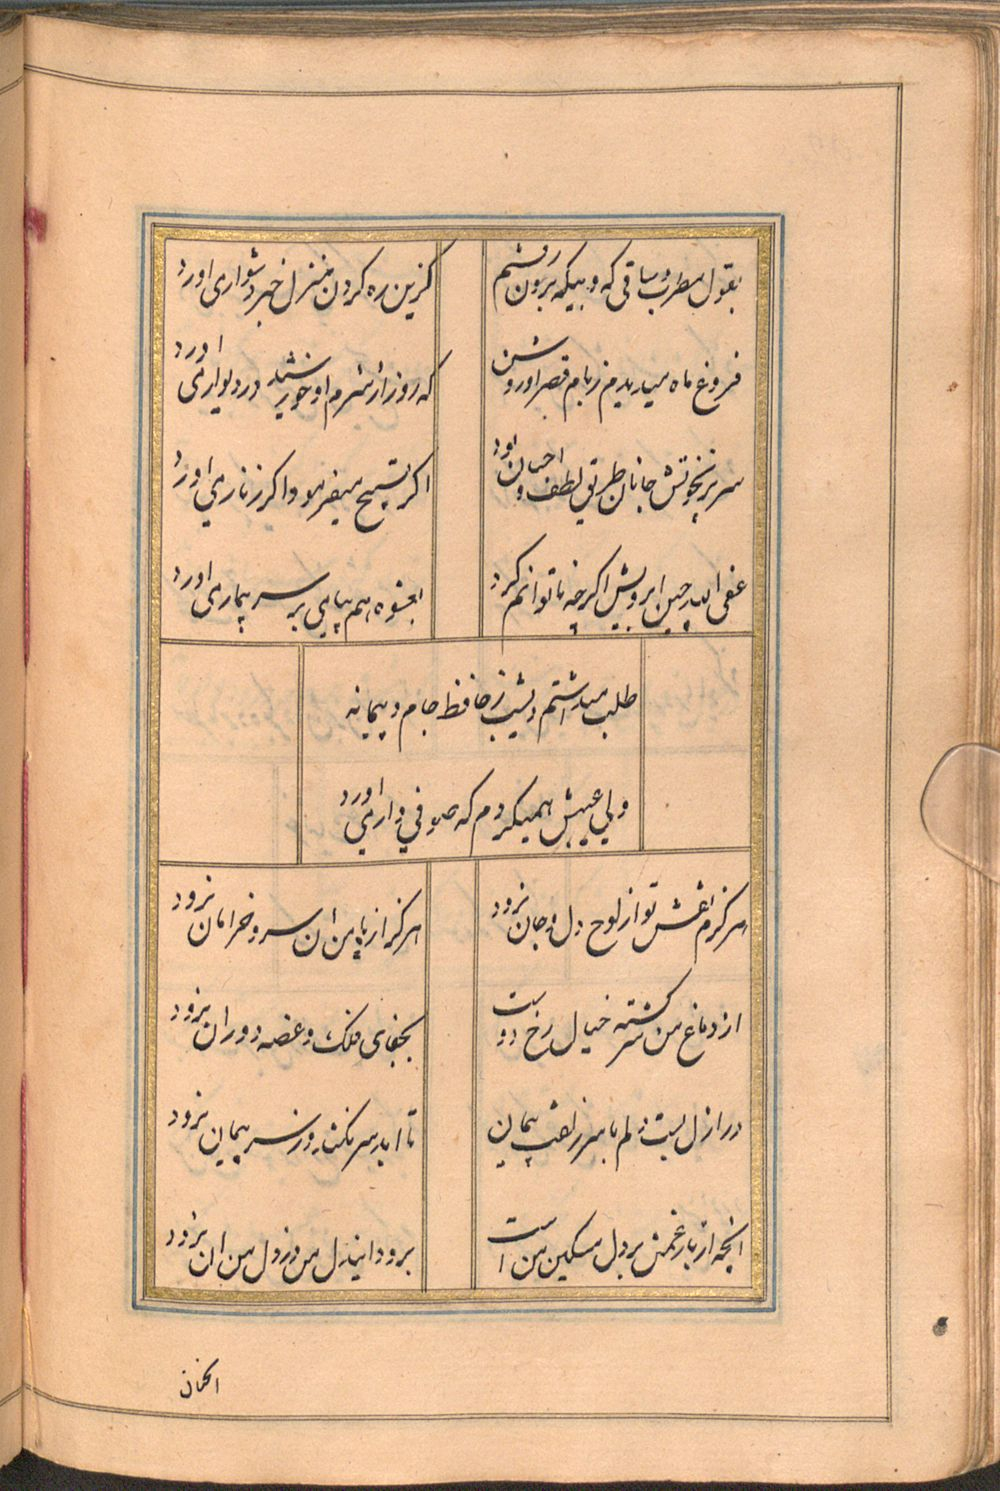 بقول مطرب و ساقی که و بیکه برون رفتم
کزین ره کردن منزل خبر دشواری اورد
فروغ ماه میدیدم ز بام قصر او روشن
که روز از شرم او خورشید در دیواری اورد
سر نزنجوتش جانان طریق لطف و احسان اورد
اکر تسبیح میفرمود اکر زناری اورد
عفی الله چین ابرویش اکرچه ناتوانم کرد
بعشوه هم پیامی بر سر بیماری اورد
طلب میداشتم دیشب ز حافظ جام و پیمانه
ولی عیبش همیکردم که صوفی واری اورد
هرکزم نقش تو از لوح دل و جان نرود
هرکز از یاد من ان سرو خرامان نرود
از دماغ من سرکشته خیال رخ دوست
بجفای فلک و غصه دوران نرود
در ازل بست دلم با سر زلفت پیمان
تا ابد سر نکشد وز سر پیمان نرود
انچه از بار غمش بر دل مسکین من است
برود این دل من وز دل من ان نرود
انچنان